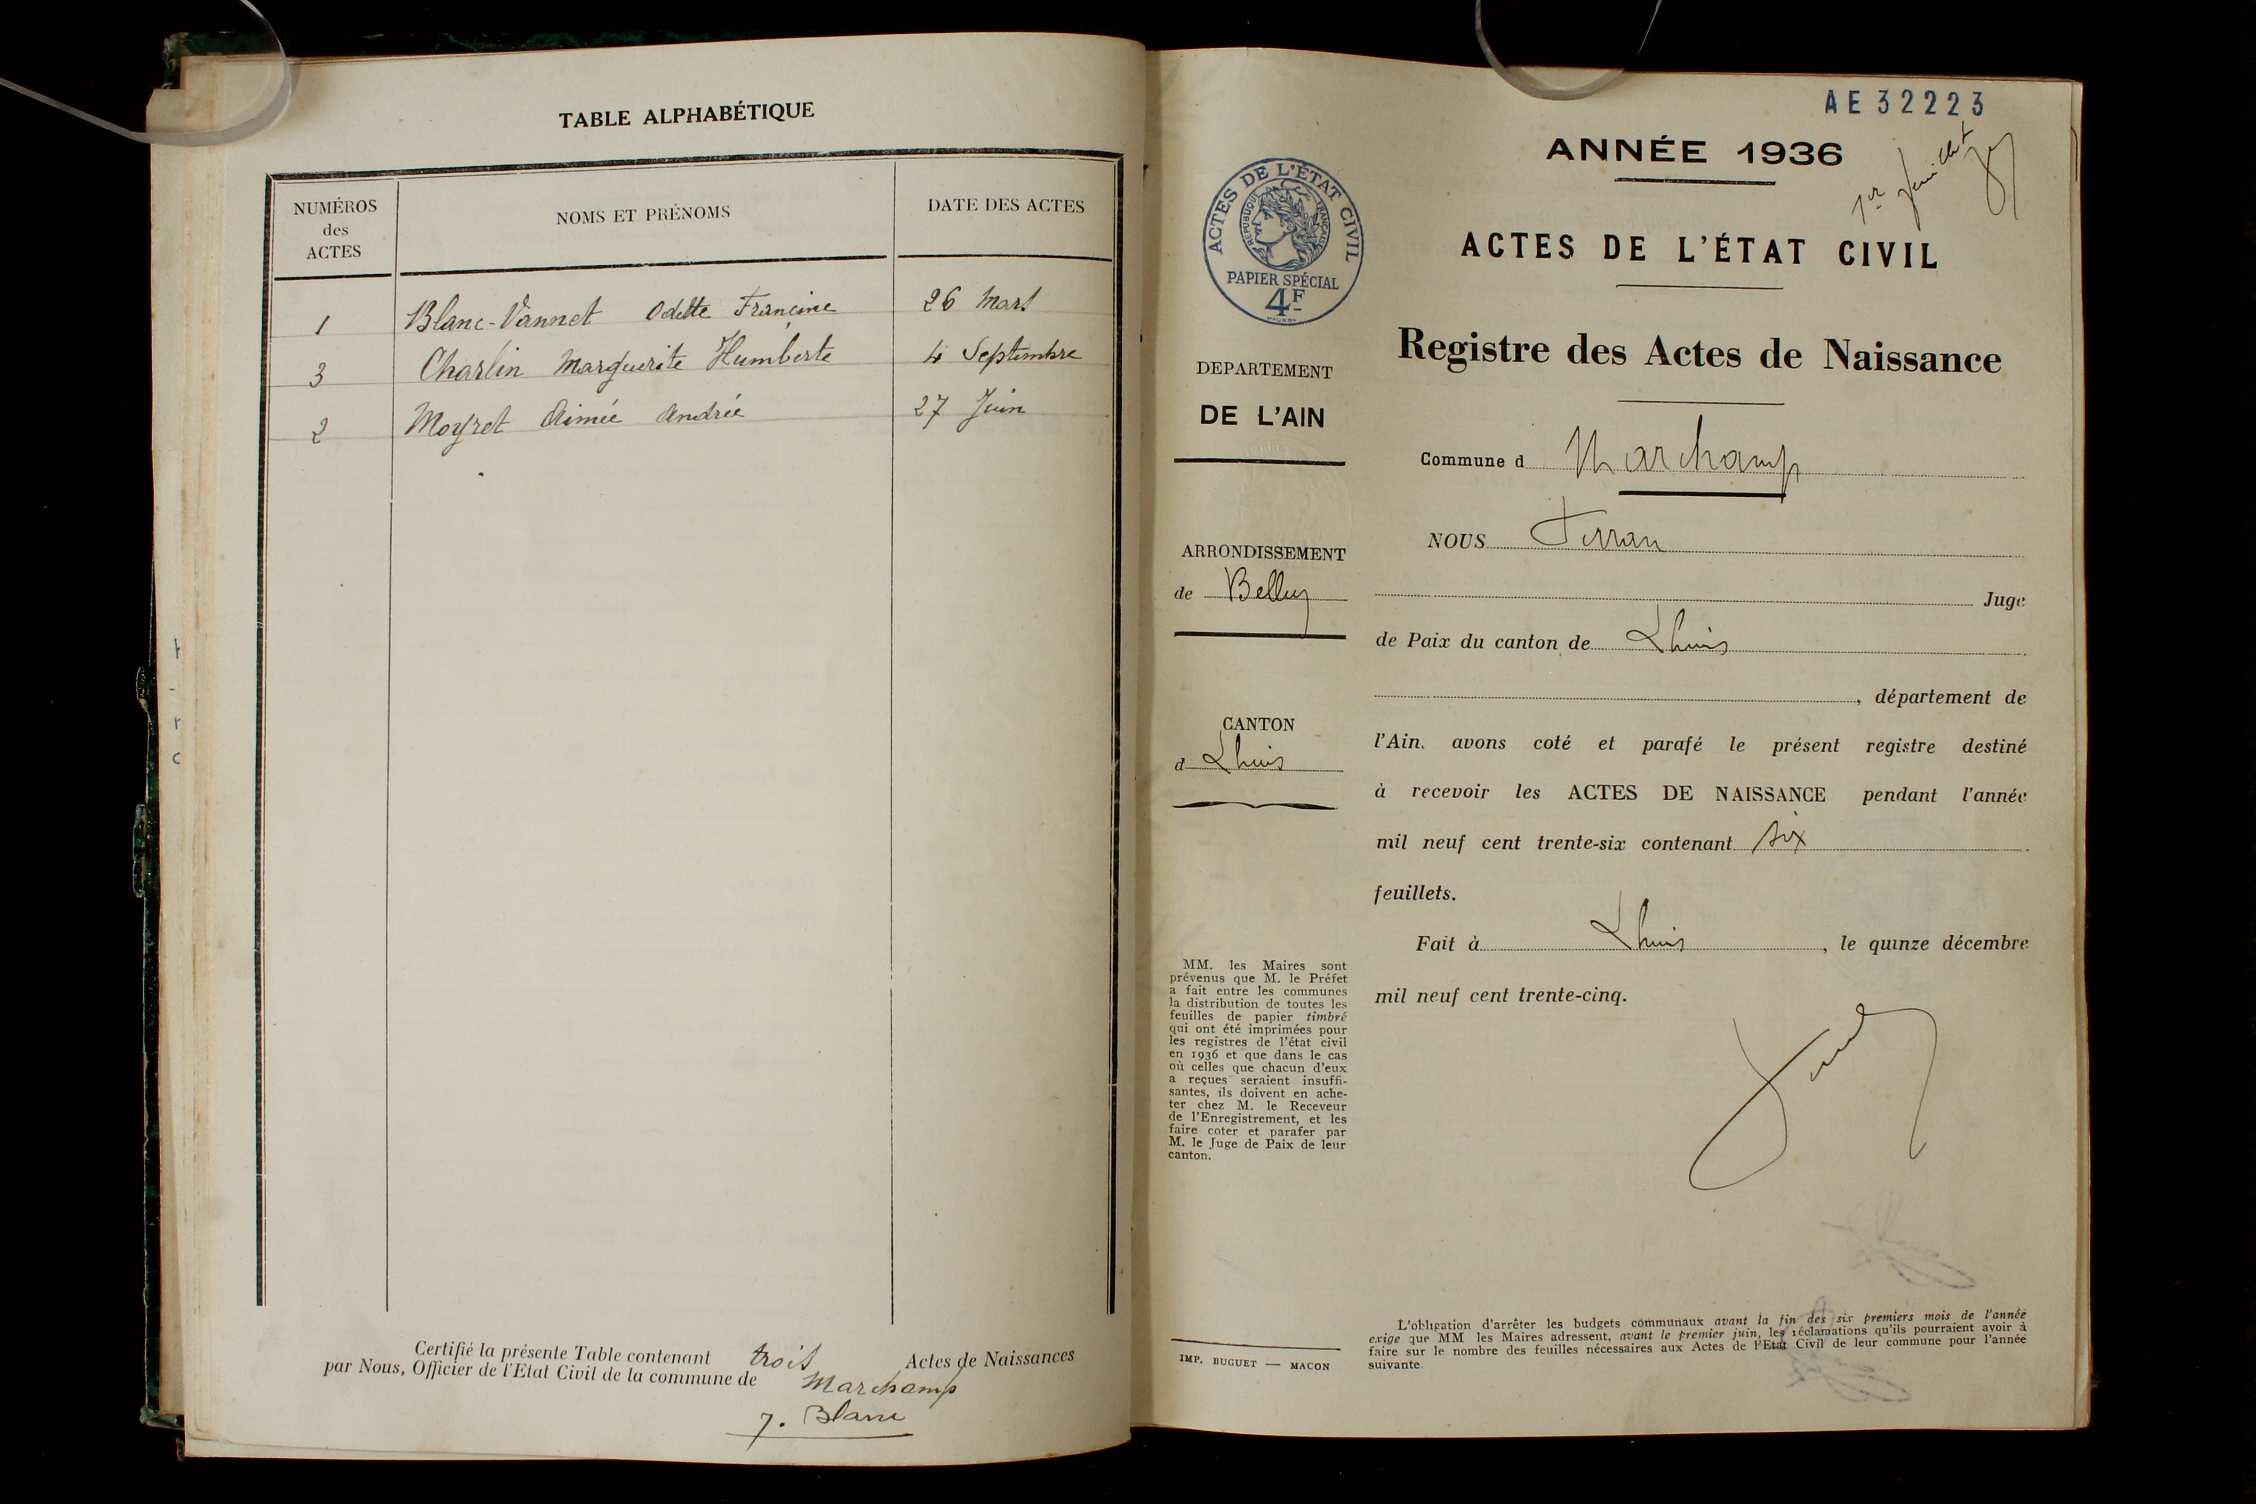 TABLE ALPHABÉTIQUE
NUMÉROS
des
ACTES
NOMS ET PRÉNOMS
DATE DES ACTES
1 Blanc-Vannet Odette Francine 26 Mars
3 Charlin Marguerite Humberte 4 Septembre
2 Moyret Aimée Andrée 27 Juin
Certifié la présente Table contenant trois Actes de Naissances
par Nous, Officier de l'Etat Civil de la commune de Marchamp
J. Blanc
AE 32223
1er feuillet
ANNÉE 1936
ACTES DE L'ÉTAT CIVIL
RÉPUBLIQUE FRANÇAISE
PAPIER SPÉCIAL
4F
ACTES DE L'ÉTAT CIVIL
Registre des Actes de Naissance
DEPARTEMENT
DE L'AIN
ARRONDISSEMENT
de Belley
CANTON
d Lhuis
MM. les Maires sont
prévenus que M. le Préfet
a fait entre les communes
la distribution de toutes les
feuilles de papier timbré
qui ont été imprimées pour
les registres de l'état civil
en 1936 et que dans le cas
où celles que chacun d'eux
a reçues seraient insuffi-
santes, ils doivent en ache-
ter chez M. le Receveur
de l'Enregistrement, et les
faire coter et parafer par
M. le Juge de Paix de leur
canton.
IMP. BUGUET — MACON
Commune d Marchamp
NOUS
Juge
de Paix du canton de Lhuis
, département de
l'Ain, avons coté et parafé le présent registre destiné
à recevoir les ACTES DE NAISSANCE pendant l'année
mil neuf cent trente-six contenant six
feuillets.
Fait à Lhuis, le quinze décembre
mil neuf cent trente-cinq.
L'obligation d'arrêter les budgets communaux avant la fin des six premiers mois de l'année
exige que MM les Maires adressent, avant le premier juin, les réclamations qu'ils pourraient avoir à
faire sur le nombre des feuilles nécessaires aux Actes de l'Etat Civil de leur commune pour l'année
suivante.